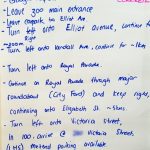 - Leave zoo main entrance
- Leave carpark to Elliot Ave
- Turn left onto Elliott avenue, continue for
~200m
- Turn left onto Kendall Ave, continue for ~1km
- Turn left onto Royal Parade.
- Continue on Royal Parade through major
roundabout (City Food) and keep right,
continuing into Elizabeth St ~5km
- Turn left onto Victoria Street,
- In 100, arrive @ Victoria Street
(LHS) Metered parking available